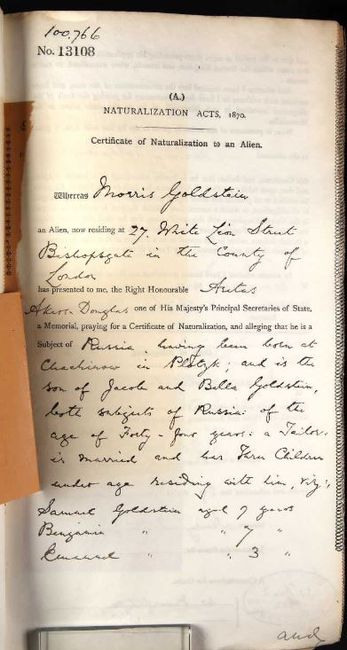 100,766
No. 13108
(A.)
NATURALIZATION ACTS, 1870.
Certificate of Naturalization to an Alien.
Whereas Morris Goldstein
an Alien, now residing at 27, White Lion Street
Bishopsgate in the County of
London
has presented to me, the Right Honourable Aretas
Akers Douglas one of His Majesty's Principal Secretaries of State,
a Memorial, praying for a Certificate of Naturalization, and alleging that he is a
Subject of Russia, having been born at
in Plotzk; and is the
son of Jacob and Bella Goldstein,
both subjects of Russia: of the
age of Forty-four years: a Tailor:
is married and has Three Children
under age residing with him, viz:,
Samuel Goldstein aged 9 years
Benjamin " " 7 "
Emanuel " " 3 "
and